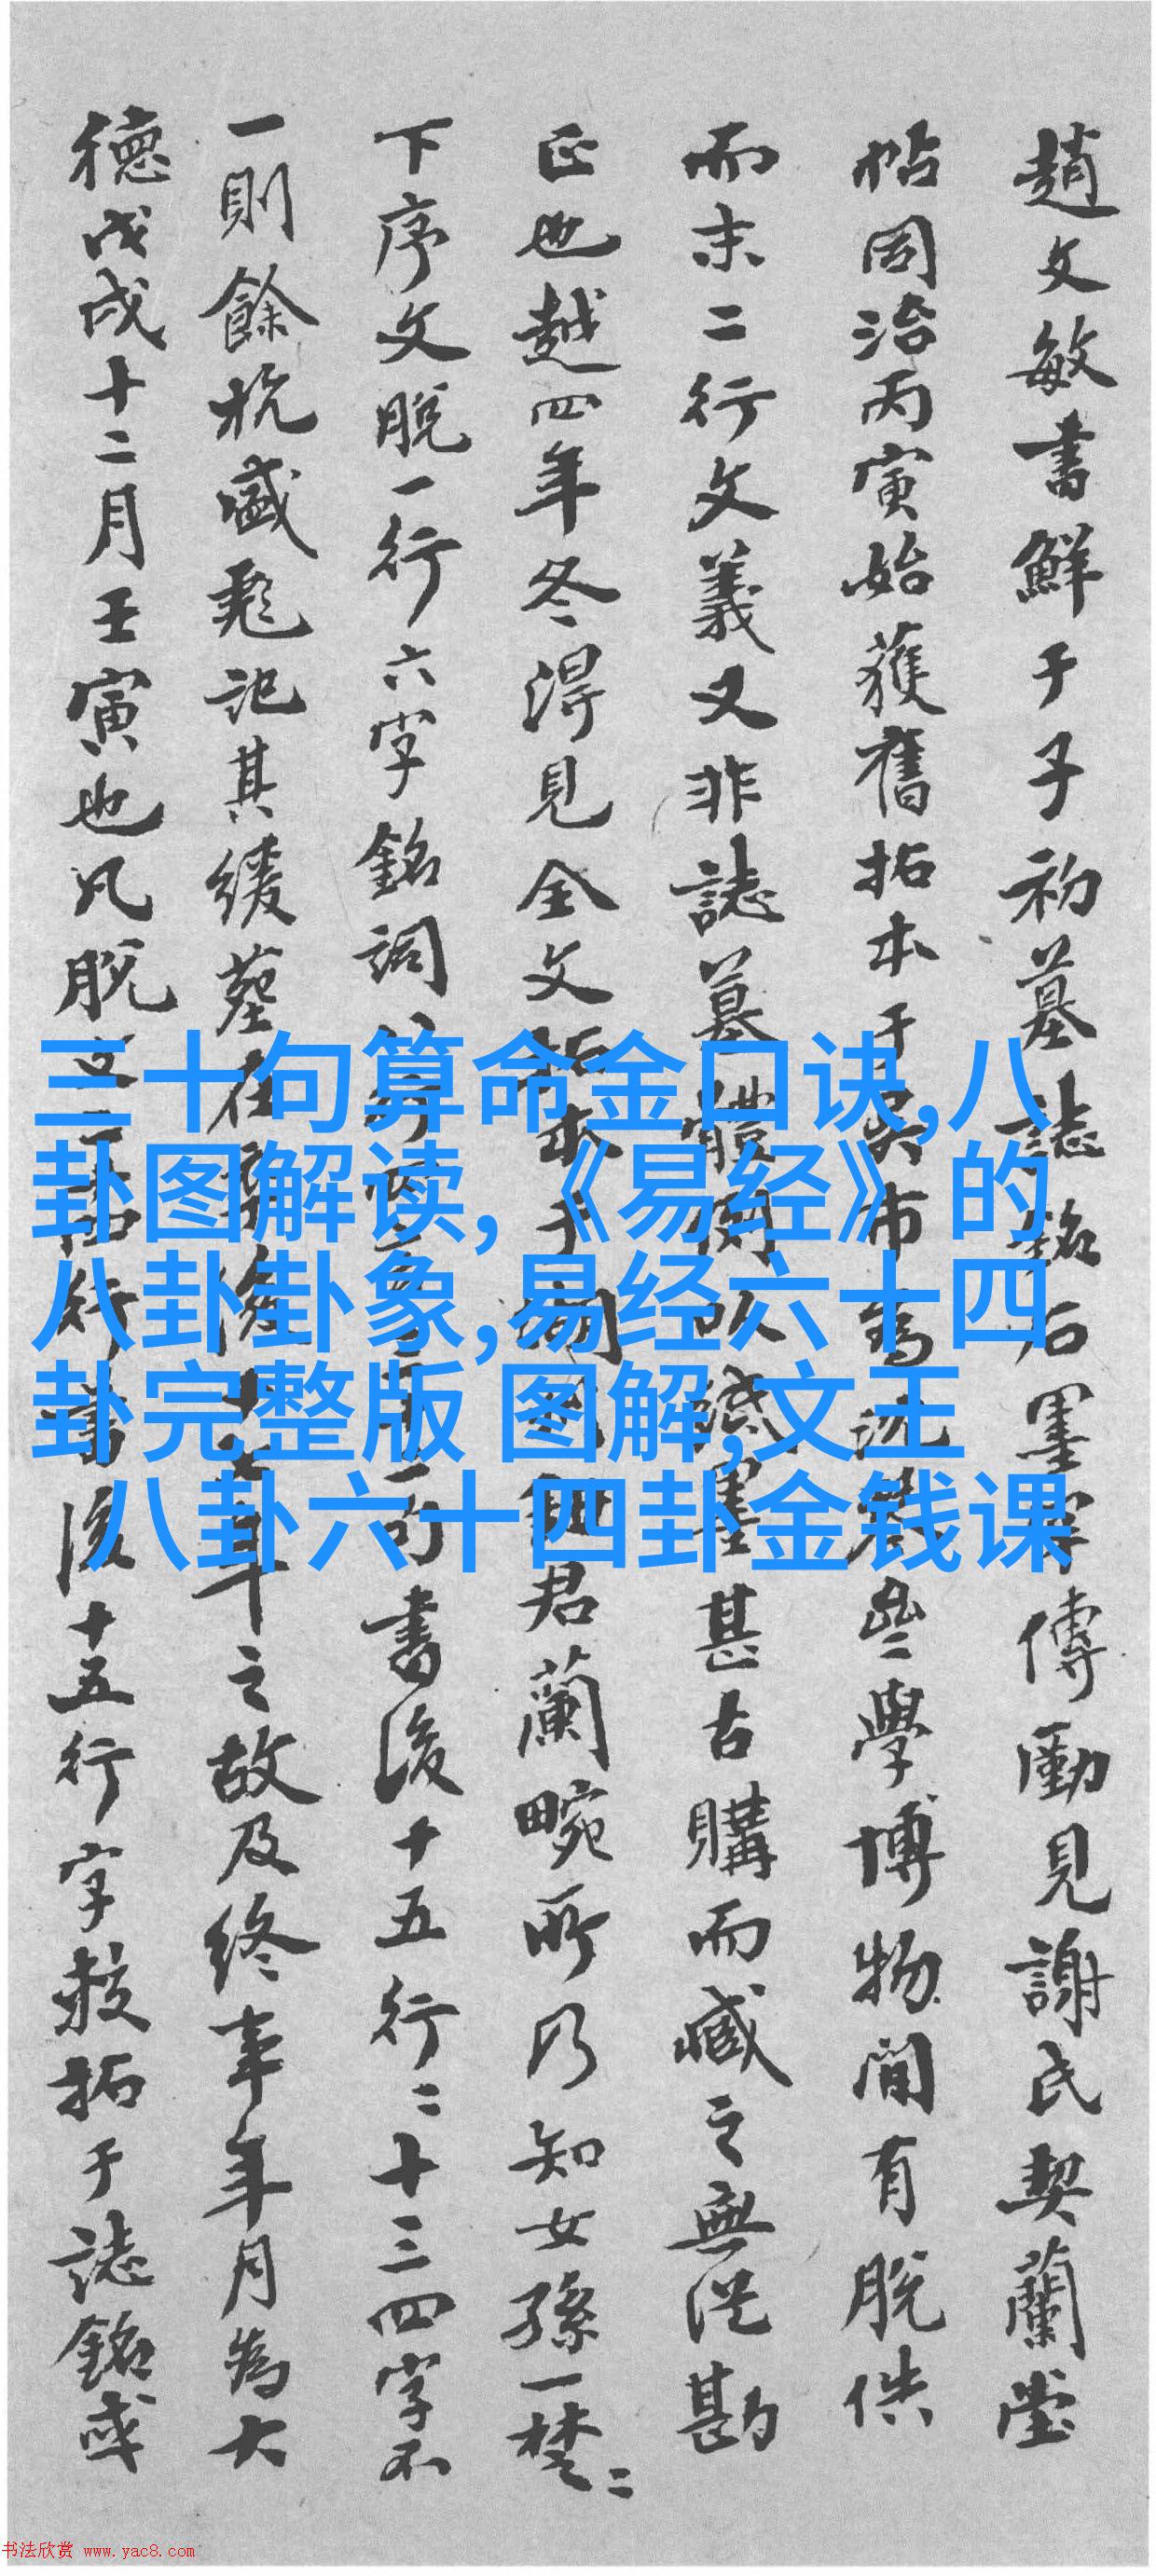 趙文敏書鮮于子初墓誌銘石墨䍧傳勵見謝氏契蘭堂
帖同治丙寅始獲舊拓本于吳市為沈 參學博物間有脫佚
而末二行文義又非誌墓體例以 墨甚古購而藏之無從勘
正也越四年冬得見全文拓本于 君蘭畹所乃知女孫一焚二
下序文脫一行六字銘詞 一句書後十五行二十三四字不
一則餘杭盛彪記其緩葬在 後十 年之故及終事年月為大
德戊戌十二月壬寅也凡脫文 行書後十五行字数拓于誌銘或
三十句算命金口诀,八
卦图解读,《易经》的
八卦卦象,易经六十四
卦完整版 图解,文王
八卦六十四卦金钱课
书法欣赏 www.yac8.com